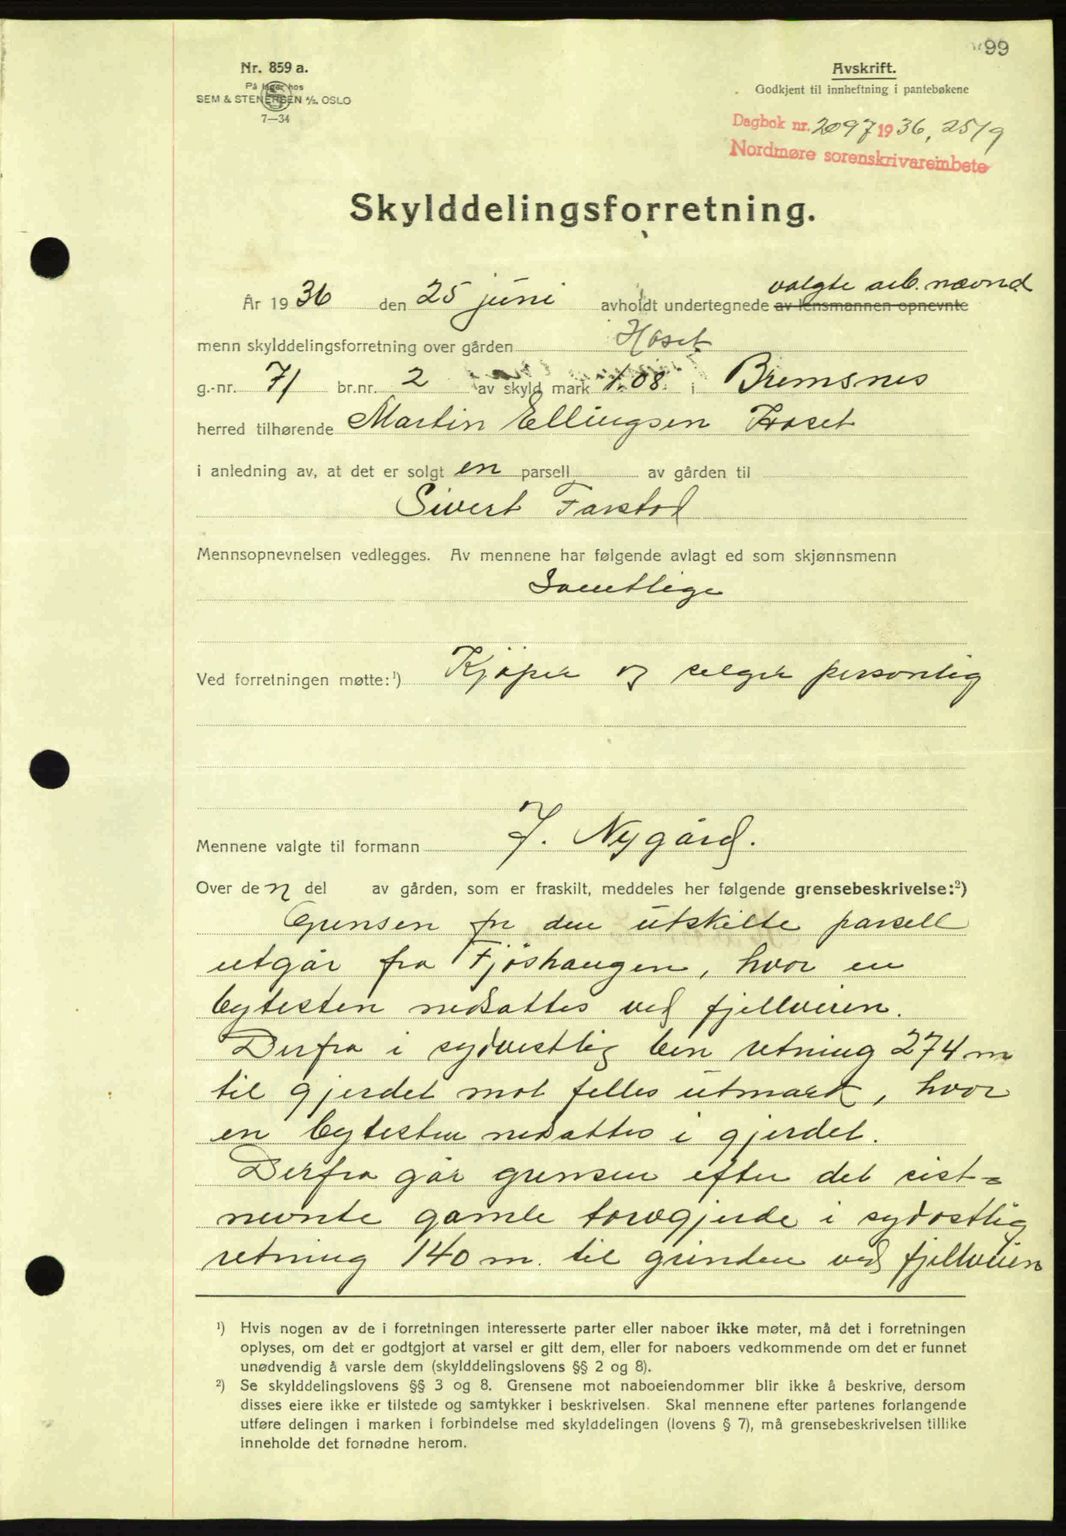 99
Nr. 859 a.
På lager hos
SEM & STENERSEN A/S, OSLO
7—34
Avskrift.
Godkjent til innheftning i pantebøkene
Dagbok nr. 2097 1936, 25/9
Nordmøre sorenskrivarembete
Skylddelingsforretning.
valgte arb. nævnd
År 1936 den 25 juni avholdt undertegnede av lensmannen opnevnte
menn skylddelingsforretning over gården Hoset
g.-nr. 71 br.nr. 2 av skyld mark 1.08 i Bremsnes
herred tilhørende Martin Ellingsen Hoset
i anledning av, at det er solgt en parsell av gården til
Sivert Farstad
Mennsopnevnelsen vedlegges. Av mennene har følgende avlagt ed som skjønnsmenn
Samtlige
Ved forretningen møtte:¹) Kjøper og selger personlig
Mennene valgte til formann J. Nygård.
Over den del av gården, som er fraskilt, meddeles her følgende grensebeskrivelse:²)
Grensen for den utskilte parsell
utgår fra Fjøshaugen, hvor en
bytesten nedsattes ved fjellveien.
Derfra i sydvestlig ben retning 274 m
til gjerdet mot felles utmark, hvor
en bytesten nedsattes i gjerdet.
Derfra går grensen efter det sist-
nevnte gamle torvgjerde i sydostlig
retning 140 m. til grinden ved fjellveien
¹) Hvis nogen av de i forretningen interesserte parter eller naboer ikke møter, må det i forretningen
oplyses, om det er godtgjort at varsel er gitt dem, eller for naboers vedkommende om det er funnet
unødvendig å varsle dem (skylddelingslovens §§ 2 og 8).
²) Se skylddelingslovens §§ 3 og 8. Grensene mot naboeiendommer blir ikke å beskrive, dersom
disses eiere ikke er tilstede og samtykker i beskrivelsen. Skal mennene efter partenes forlangende
utføre delingen i marken i forbindelse med skylddelingen (lovens § 7), må grensebeskrivelsen tillike
inneholde det fornødne herom.